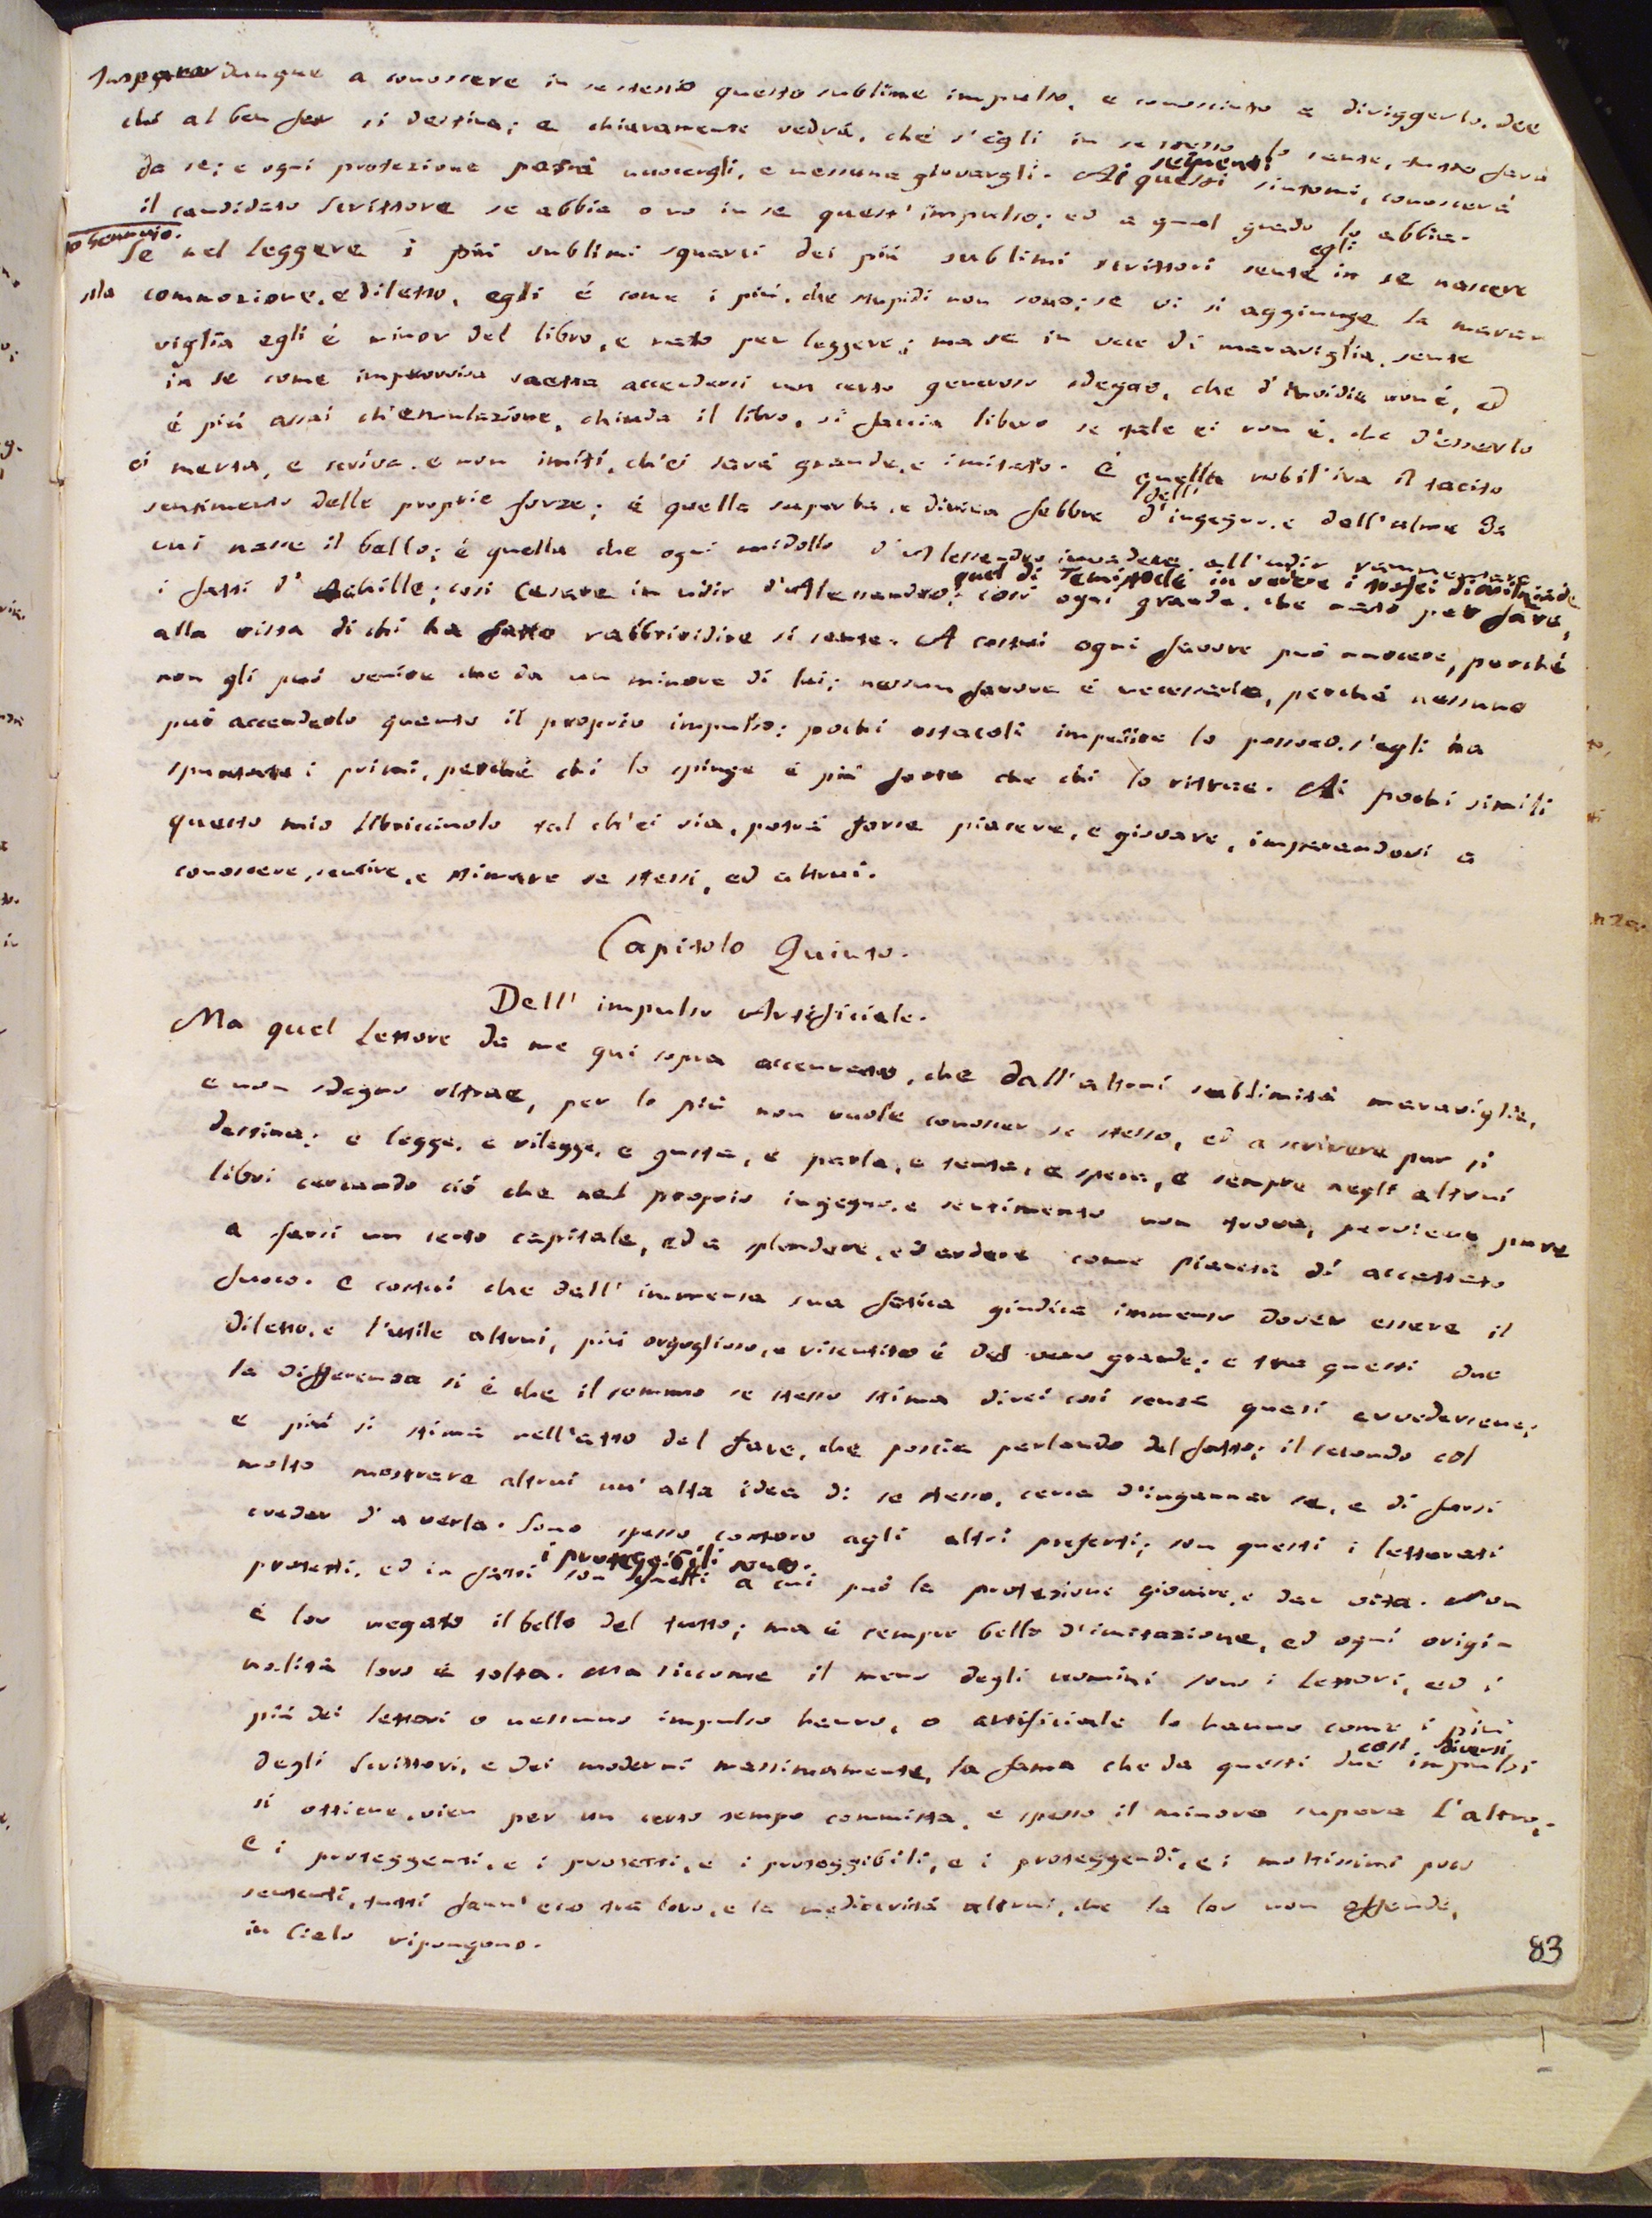 Imparar dunque a conoscere in se stesso questo sublime impulso, e conosciuto a diriggerlo, dee
chi al ben far si destina; e chiaramente vedrá, che s'egli in se stesso lo sente, tutto fará
da se; e ogni protezione potrá nuocergli, e nessuna giovargli. Ai questi sintomi, conoscerá
seguenti
il candidato Scrittore se abbia o no in se quest'impulso; ed a qual grado lo abbia.
10 Gennaio.
egli
Se nel leggere i piú sublimi squarci dei piú sublimi scrittori sente in se nascere
commozione, e diletto, egli é come i piú, che stupidi non sono; se vi si aggiunge la mara-
viglia egli é minor del libro, e nato per leggere; ma se in vece di maraviglia, sente
in se come improvvisa saetta accendersi un certo generoso sdegno, che d'invidia non é, ed
é piú assai ch'emulazione, chiuda il libro, si faccia libero se tale ei non é, che d'esserlo
ei merta, e scriva, e non imiti, ch'ei sará grande, e imitato. É quella nobil'ira il tacito
dell'
sentimento delle proprie forze; é quella superba, e divina febbre d'ingegno, e dell'alma da
cui nasce il bello; é quella che ogni midollo d'Alessandro invadeva all'udir rammentare
quel di Temistocle in vedere i trofei di Milziade
i fatti d'Achille; cosí Cesare in udir d'Alessandro; cosí ogni grande, che nato per fare,
alla vista di chi ha fatto rabbrividire si sente. A costui ogni favore puó nuocere, perché
non gli puó venire che da un minore di lui; nessun favore é necessario, perché nessuno
puó accenderlo quanto il proprio impulso; pochi ostacoli impedire lo possono, s'egli ha
spuntato i primi, perché chi lo spinge é piú forte che chi lo ritrae. Ai pochi simili
questo mio libricciuolo tal ch'ei sia, potrá forse piacere, e giovare, imparandovi a
conoscere, sentire, e stimare se stessi, ed altrui.
Capitolo Quinto.
Dell'impulso Artificiale.
Ma quel Lettore da me qui sopra accennato, che dall'altrui sublimitá maraviglia,
e non sdegno ritrae, per lo piú non vuole conoscer se stesso, ed a scrivere pur si
destina; e legge, e rilegge, e gusta, e parla, e tenta, e spera, e sempre negli altrui
libri cercando ció che nel proprio ingegno, e sentimento non trova, perviene pure
a farsi un certo capitale, ed a splendere, ed ardere come pianeta di accattato
fuoco. E costui che dall'immensa sua fatica giudica immenso dover essere il
diletto, e l'utile altrui, piú orgoglioso, e risentito é del vero grande; e tra questi due
la differenza si é che il sommo se stesso stima direi cosí senza quasi avvedersene;
e piú si stima nell'atto del fare, che poscia parlando del fatto; il secondo col
molto mostrare altrui un'alta idea di se stesso, cerca d'ingannar se, e di farsi
creder d'averla. Sono spesso costoro agli altri preferti; son questi i letterati
i proteggibili sono.
protetti, ed in fatti son quelli a cui puó la protezione giovare, e dar vita. Non
é lor negato il bello del tutto; ma é sempre bello d'imitazione, ed ogni origi-
nalitá loro é tolta. Ma siccome il meno degli uomini sono i Lettori, ed i
piú dei lettori o nessuno impulso hanno, o artificiale lo hanno come i piú
cosí diversi
degli Scrittori, e dei moderni massimamente, la fama che da questi due impulsi
si ottiene, vien per un certo tempo commista, e spesso il minore supera l'altro;
e i proteggenti, e i protetti, e i proteggibili, e i proteggendi, e i moltissimi poco
sententi, tutti fann'eco tra loro, e la mediocritá altrui, che la lor non offende,
in Cielo ripongono.
83